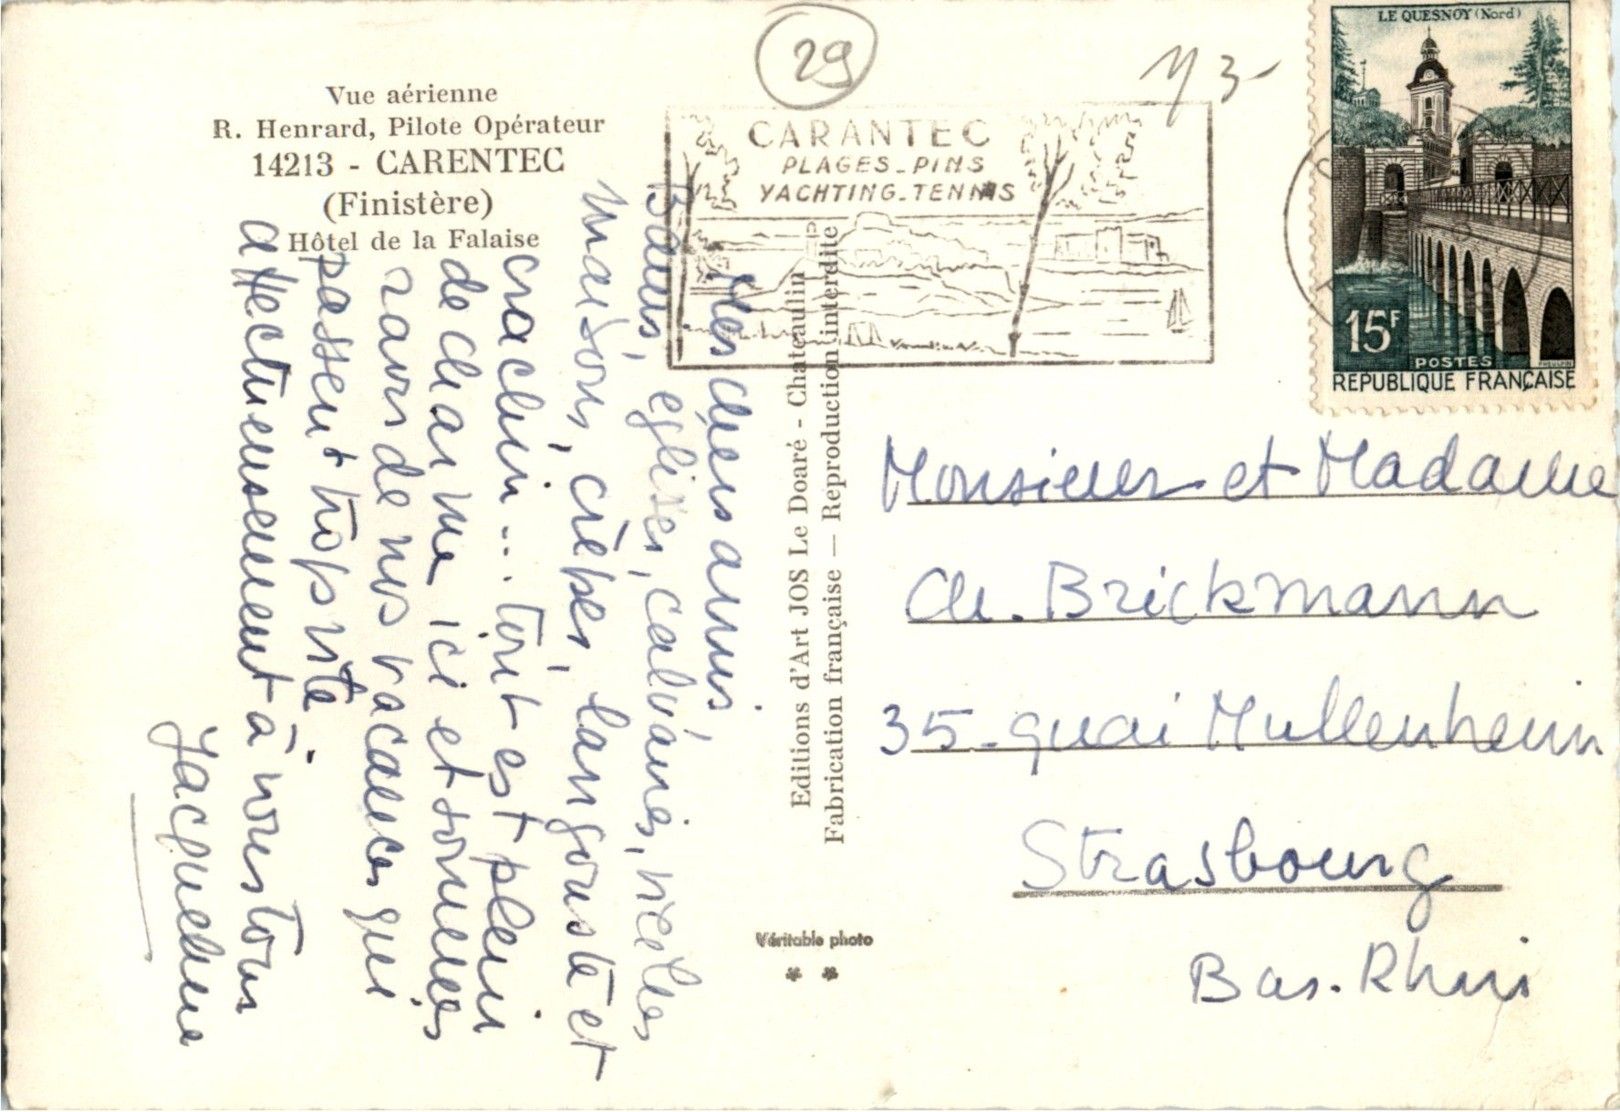 29
Vue aérienne
R. Henrard, Pilote Opérateur
14213 - CARENTEC
(Finistère)
Hôtel de la Falaise
CARANTEC
PLAGES_PINS
YACHTING_TENNIS
LE QUESNOY (Nord)
15F
POSTES
REPUBLIQUE FRANÇAISE
Mes chers amis,
Bains, eglises, calvaires, vieilles
maisons, crêpes, langouste et
crachin... tout est plein
de charme ici et sommes
ravis de nos vacances qui
passent trop vite
affectueusement à vous tous
Jacqueline
Editions d'Art JOS Le Doaré - Chateaulin
Fabrication française — Reproduction interdite
Véritable photo
Monsieur et Madame
Ch. Brickmann
35 - quai Mullenheim
Strasbourg
Bas-Rhin